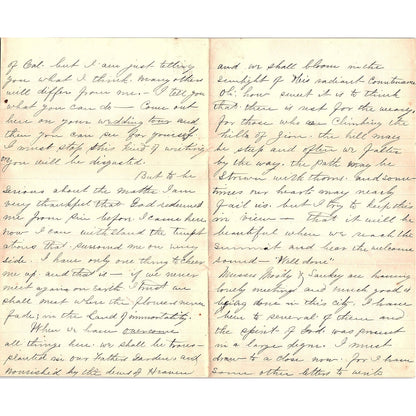 of Cal. but I am just telling
you what I think. Many others
will differ from me. I tell you
what you can do — Come out
here on your wedding tour and
then you can see for yourself.
I must stop this kind of writing
or you will be disgusted.
But to be
serious about the matter I am
very thankful that God redeemed
me from sin before I came here
now I can withstand the tempt
ations that surround me on every
side. I have only one thing to cheer
me up. and that is — if we never
meet again on earth I trust we
shall meet where the flowers never
fade; in the Land of immortality."
When we have overcome
all things here we shall be trans-
planted in our Fathers Garden and
nourished by the dews of Heaven
and we shall bloom in the
sunlight of His radiant countenance
Oh! how sweet it is to think
that there is rest for the weary,
for those who are Climbing the
hills of Zion. the hill may
be steep and often we falter
by the way. the path may be
strewn with thorns. and some-
times our hearts may nearly
fail us. but I try to keep this
in view — that it will be
beautiful when we reach the
summit and hear the welcome
sound — "Well done"
Messrs Moody & Sankey are having
lovely meetings and much good is
being done in this city. I have
been to several of them and
the spirit of God was present
in a large degree. I must
draw to a close now. for I have
some other letters to write